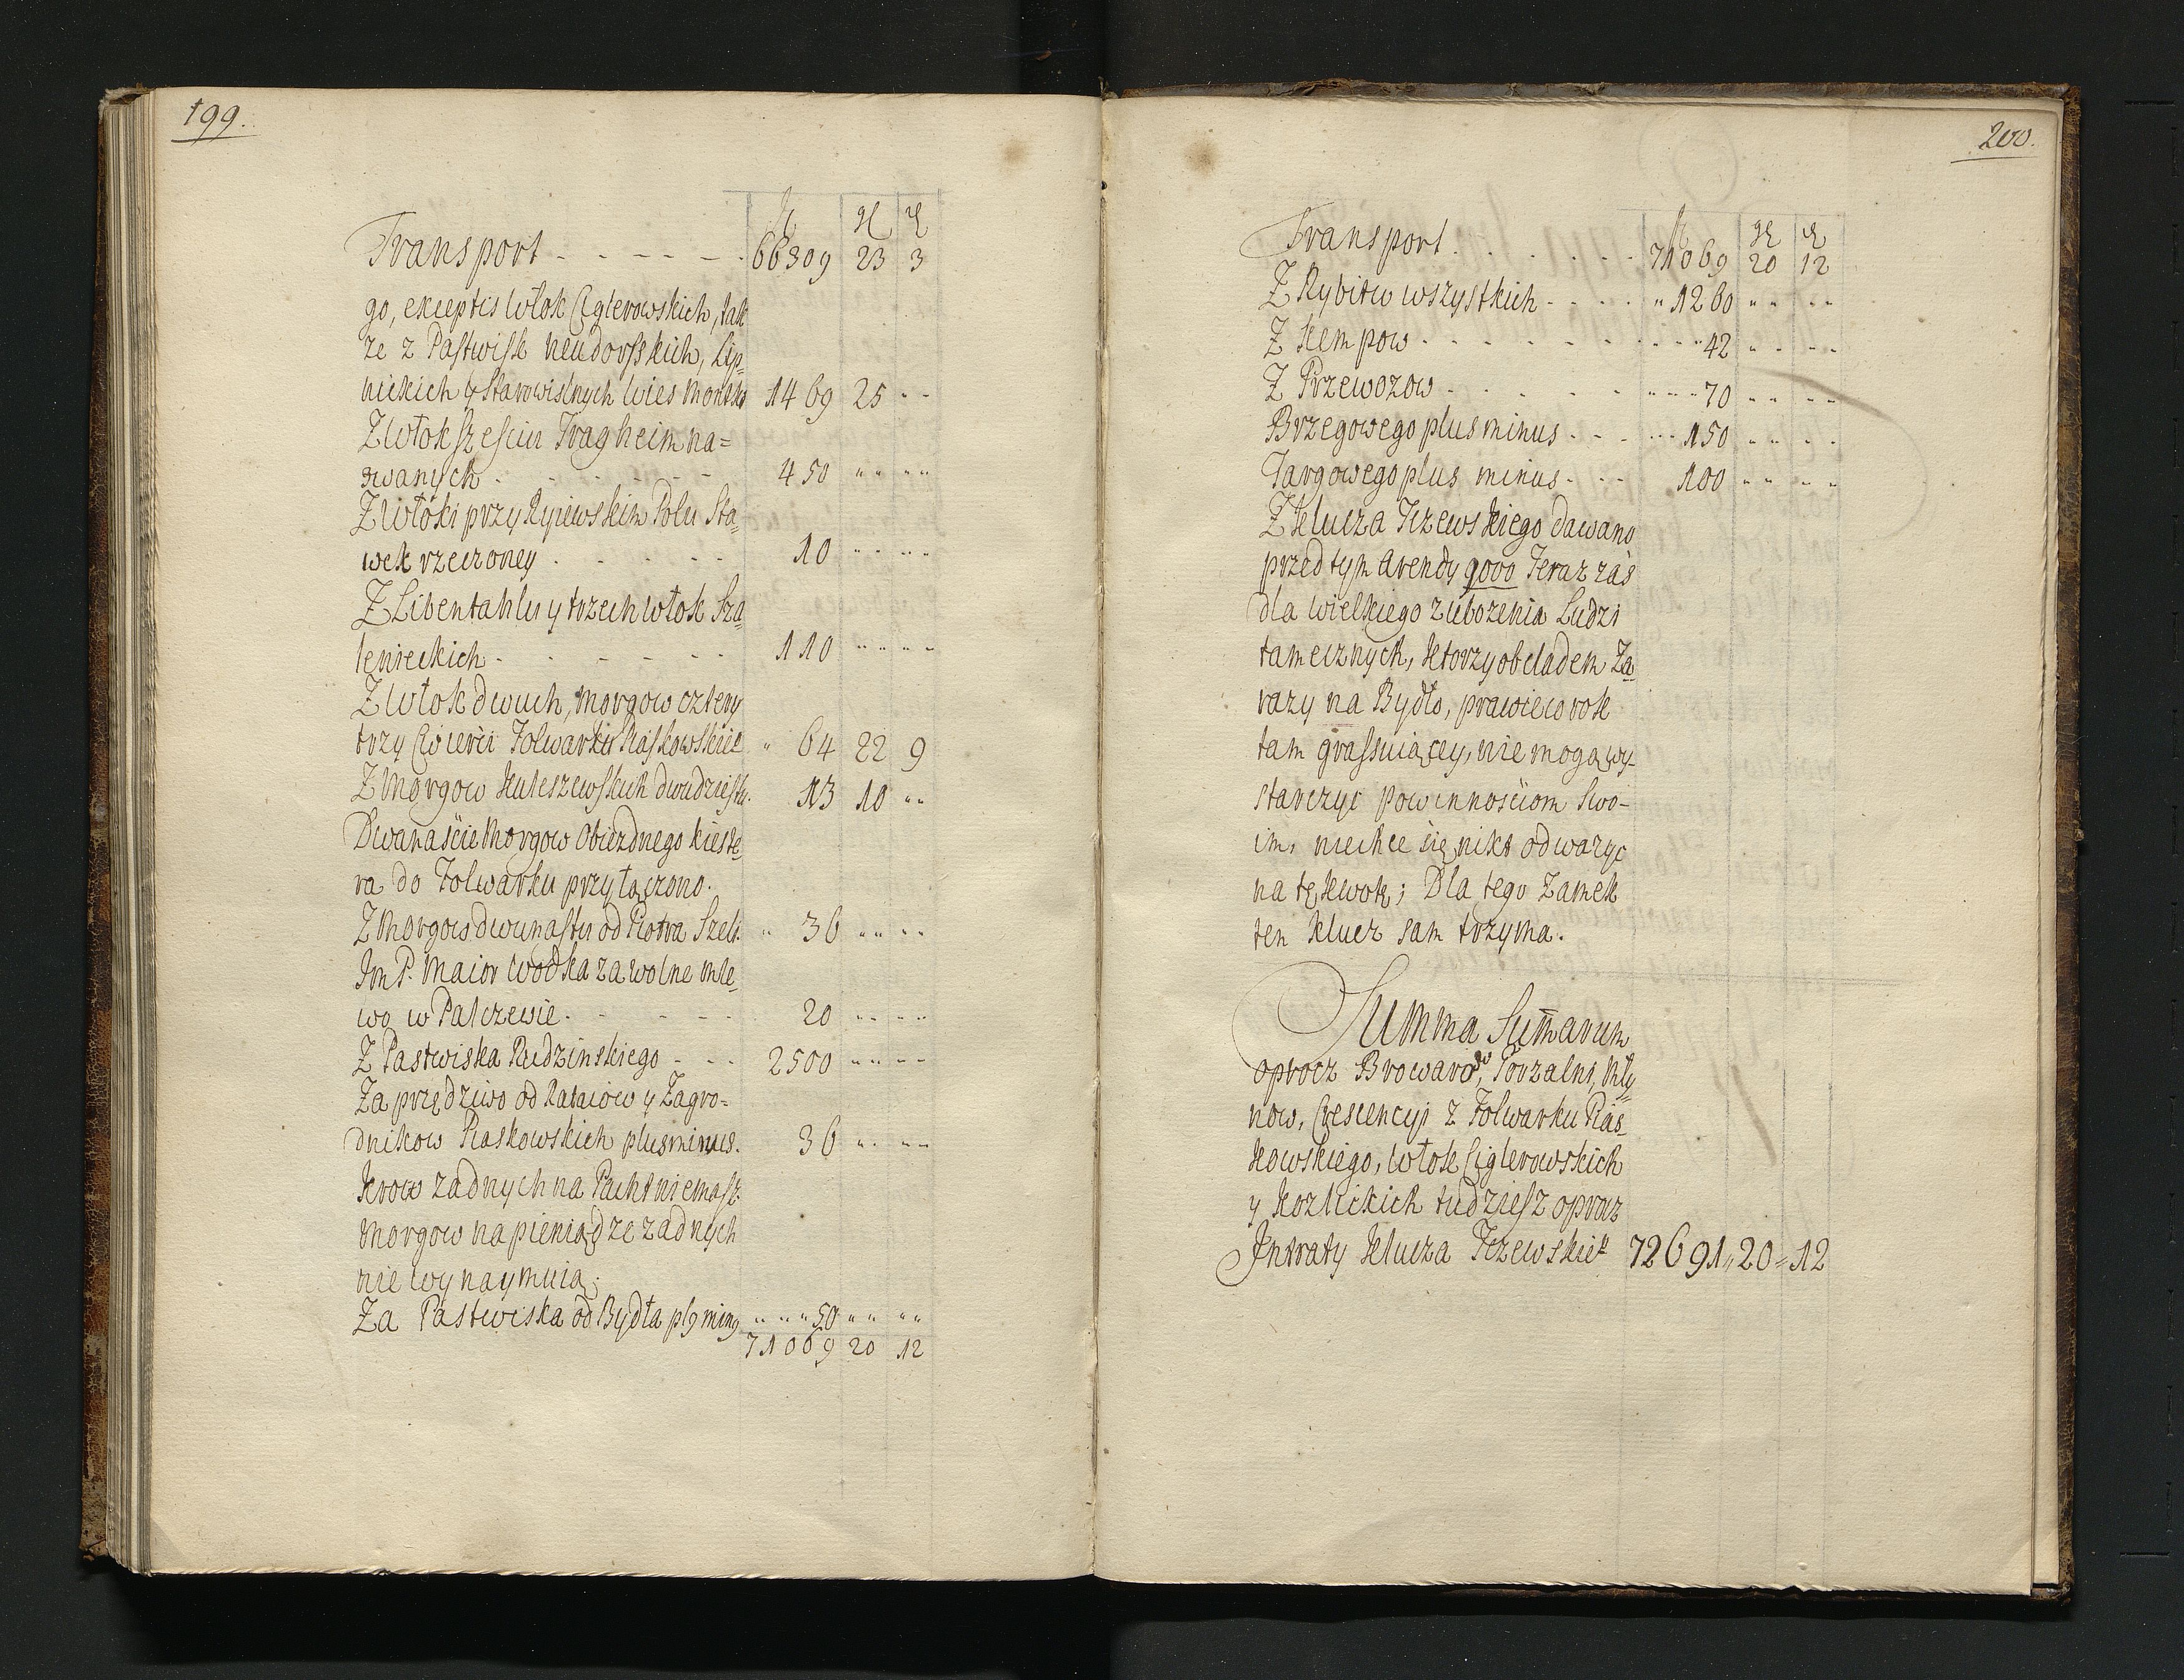 199.
Transport - - - - - - 66309 23 3
go, exceptis Włok Cyglerowskich, tak
że z Pastwisk Neudorfskich, Lip=
nickich y Starowislnych Wies Montki 1469 25 - -
Z Włok sześciu Tragheim na=
zwanych - - - - - - 450 " " " "
Z Włóki przy Ryjewskim Polu Sta=
wek rzeczoney - - - - - 10 " " " "
Z Libentahlu y trzech włok Sza=
lenieckich - - - - - - 110 " " " "
Z Włok dwuch, morgow cztery
trzy Cwierci Folwarku Piaskowskie " 64 22 9
Z Morgow Kuleszewskich dwudziestu. 13 10 "
Dwanaście Morgow Obiezdnego Kieste=
ra do Folwarku przyłączono.
Z Morgow dwunastu od Piotra Szeli. " 36 " " " "
Jm P. Maior Wodka za wolne mle=
wo w Palczewie - - - - - 20 " " " "
Z Pastwiska Rudzinskiego - - - 2500 " " " "
Za przędziwo od Rataiow y Zagro=
dnikow Piaskowskich plus minus. 36 " " " "
Krow zadnych na Pacht niemasz.
Morgow na pieniądze zadnych
nie wynaymuią.
Za Pastwiska od Bydła pl9 min9 " " " 50 " " " "
71069 20 12
200.
Transport - - - - - - 71069 20 12
Z Rybitw wszystkich - - - - " 1260 " " " "
Z Kempow - - - - - - - - - 42 " " " "
Z Przewozow - - - - - " " " 70 " " " "
Brzegowego plus minus - - - " " 150 " " " "
Targowego plus minus - - - 100 " " " "
Z Klucza Tczewskiego dawano
przed tym Arendy 9000 Teraz zas
dla wielkiego zubozenia Ludzi
tamecznych, ktorzy obeladem Za=
razy na Bydło, prawie w rok
tam grassuiącey, nie mogą wy-
starczyć powinnościom Swo-
im, niechce się nikt odwazyc
na tę kwotę; Dla tego Zamek
ten klucz sam trzyma.
Summa Sum̄arum
oprocz Browarow, Gorzalni, Mły=
now, Crescencyi z Folwarku Pias=
kowskiego, Włok Cyglerowskich
y Kozlickich tudziesz oprocz
Jntraty Klucza Tczewskie 72691 " 20 = 12